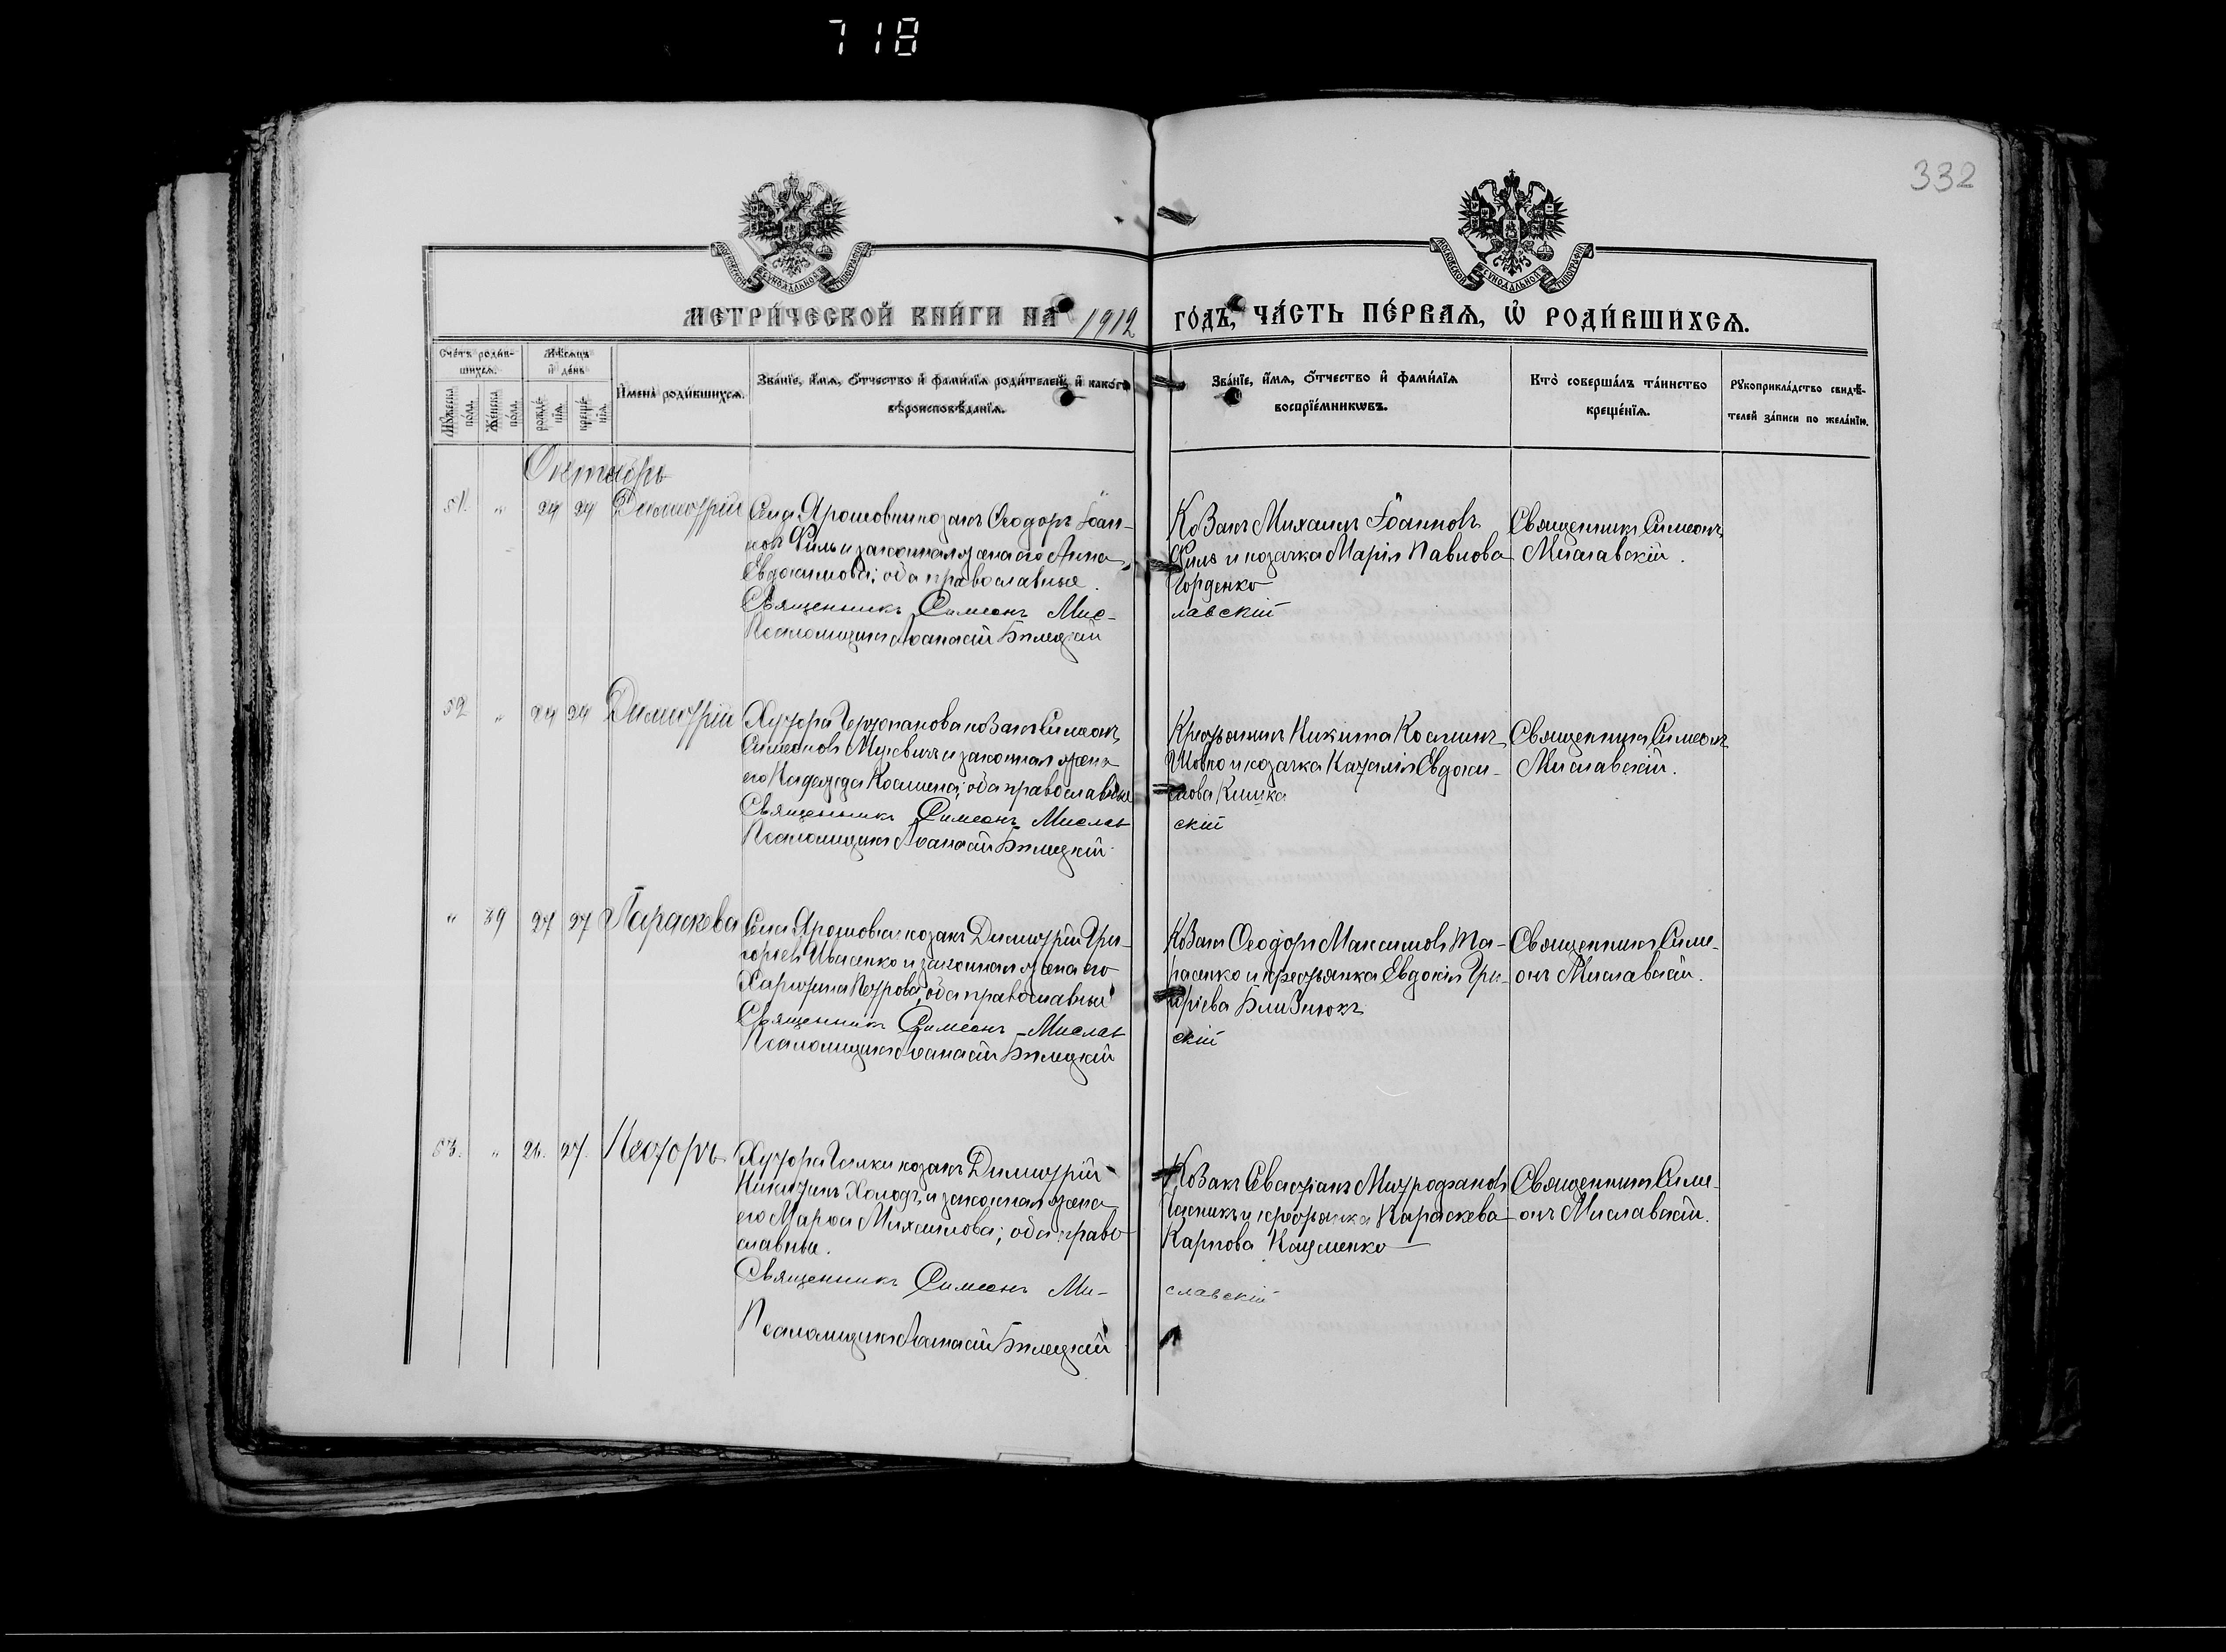 718
332
МЕТРИ́ЧЕСКОЙ КНИ́ГИ НА 1912 ГО́ДЪ, ЧА́СТЬ ПЕ́РВАѦ, Ѡ҆ РОДИ́ВШИХСѦ.
Сче́тъ роди́в-
шихсѧ.
Мѣ́сѧцъ
и҆ де́нь
Мꙋ́жеска по́ла.
Же́нска по́ла.
рожде́-
нїѧ.
креще́-
нїѧ.
И҆мена̀ роди́вшихсѧ.
Зва́нїе, и҆́мѧ, ѻ҆́тчество и҆ фами́лїѧ роди́телей, и҆ како́гѡ
вѣроисповѣ́данїѧ.
Зва́нїе, и҆́мѧ, ѻ҆́тчество и҆ фами́лїѧ
воспрїе́мникѡвъ.
Кто̀ соверша́лъ та́инство
креще́нїѧ.
Рꙋкоприкла́дство свидѣ́-
телей за́писи по жела́нїю.
Октябрь
51. " 24 24 Димитрій
Села Ярошовки козакъ Ѳеодоръ Іоан-
новъ Филь и законная жена его Анна
Евдокимова; оба православные.
Священникъ Симеонъ Мис-
лавскій
Псаломщикъ Аѳанасій Билецкій
Козакъ Михаилъ Іоанновъ
Филь и козачка Марія Павлова
Горденко
Священникъ Симеонъ
Миславскій.
52 " 24 24 Димитрій
Хутора козакъ Симеонъ
Симеоновъ и законная жена
его Надежда Космина; оба православные
Священникъ Симеонъ Мислав-
скій
Псаломщикъ Аѳанасій Билецкій
Крестьянинъ Никита Косминъ
Шовко и козачка Наталія Евдоки-
мова Кишка
Священникъ Симеонъ
Миславскій.
" 39 27 27 Параскева
Села Ярошовки козакъ Димитрій Гри-
горіевъ Ивасенко и законная жена его
Харитина Петрова; оба православные
Священникъ Симеонъ Мислав-
скій
Псаломщикъ Аѳанасій Билецкій
Козакъ Ѳеодоръ Максимовъ Та-
расенко и крестьянка Евдокія Гри-
горіева Близнюкъ
Священникъ Симе-
онъ Миславскій.
53. " 26. 27. Несторъ
Хутора Галки козакъ Димитрій
Никитинъ Холодъ и законная жена
его Марѳа Михаилова; оба право-
славные.
Священникъ Симеонъ Ми-
славскій
Псаломщикъ Аѳанасій Билецкій
Козакъ Севастіанъ Митрофановъ
и крестьянка Параскева
Карпова Науменко
Священникъ Симе-
онъ Миславскій.